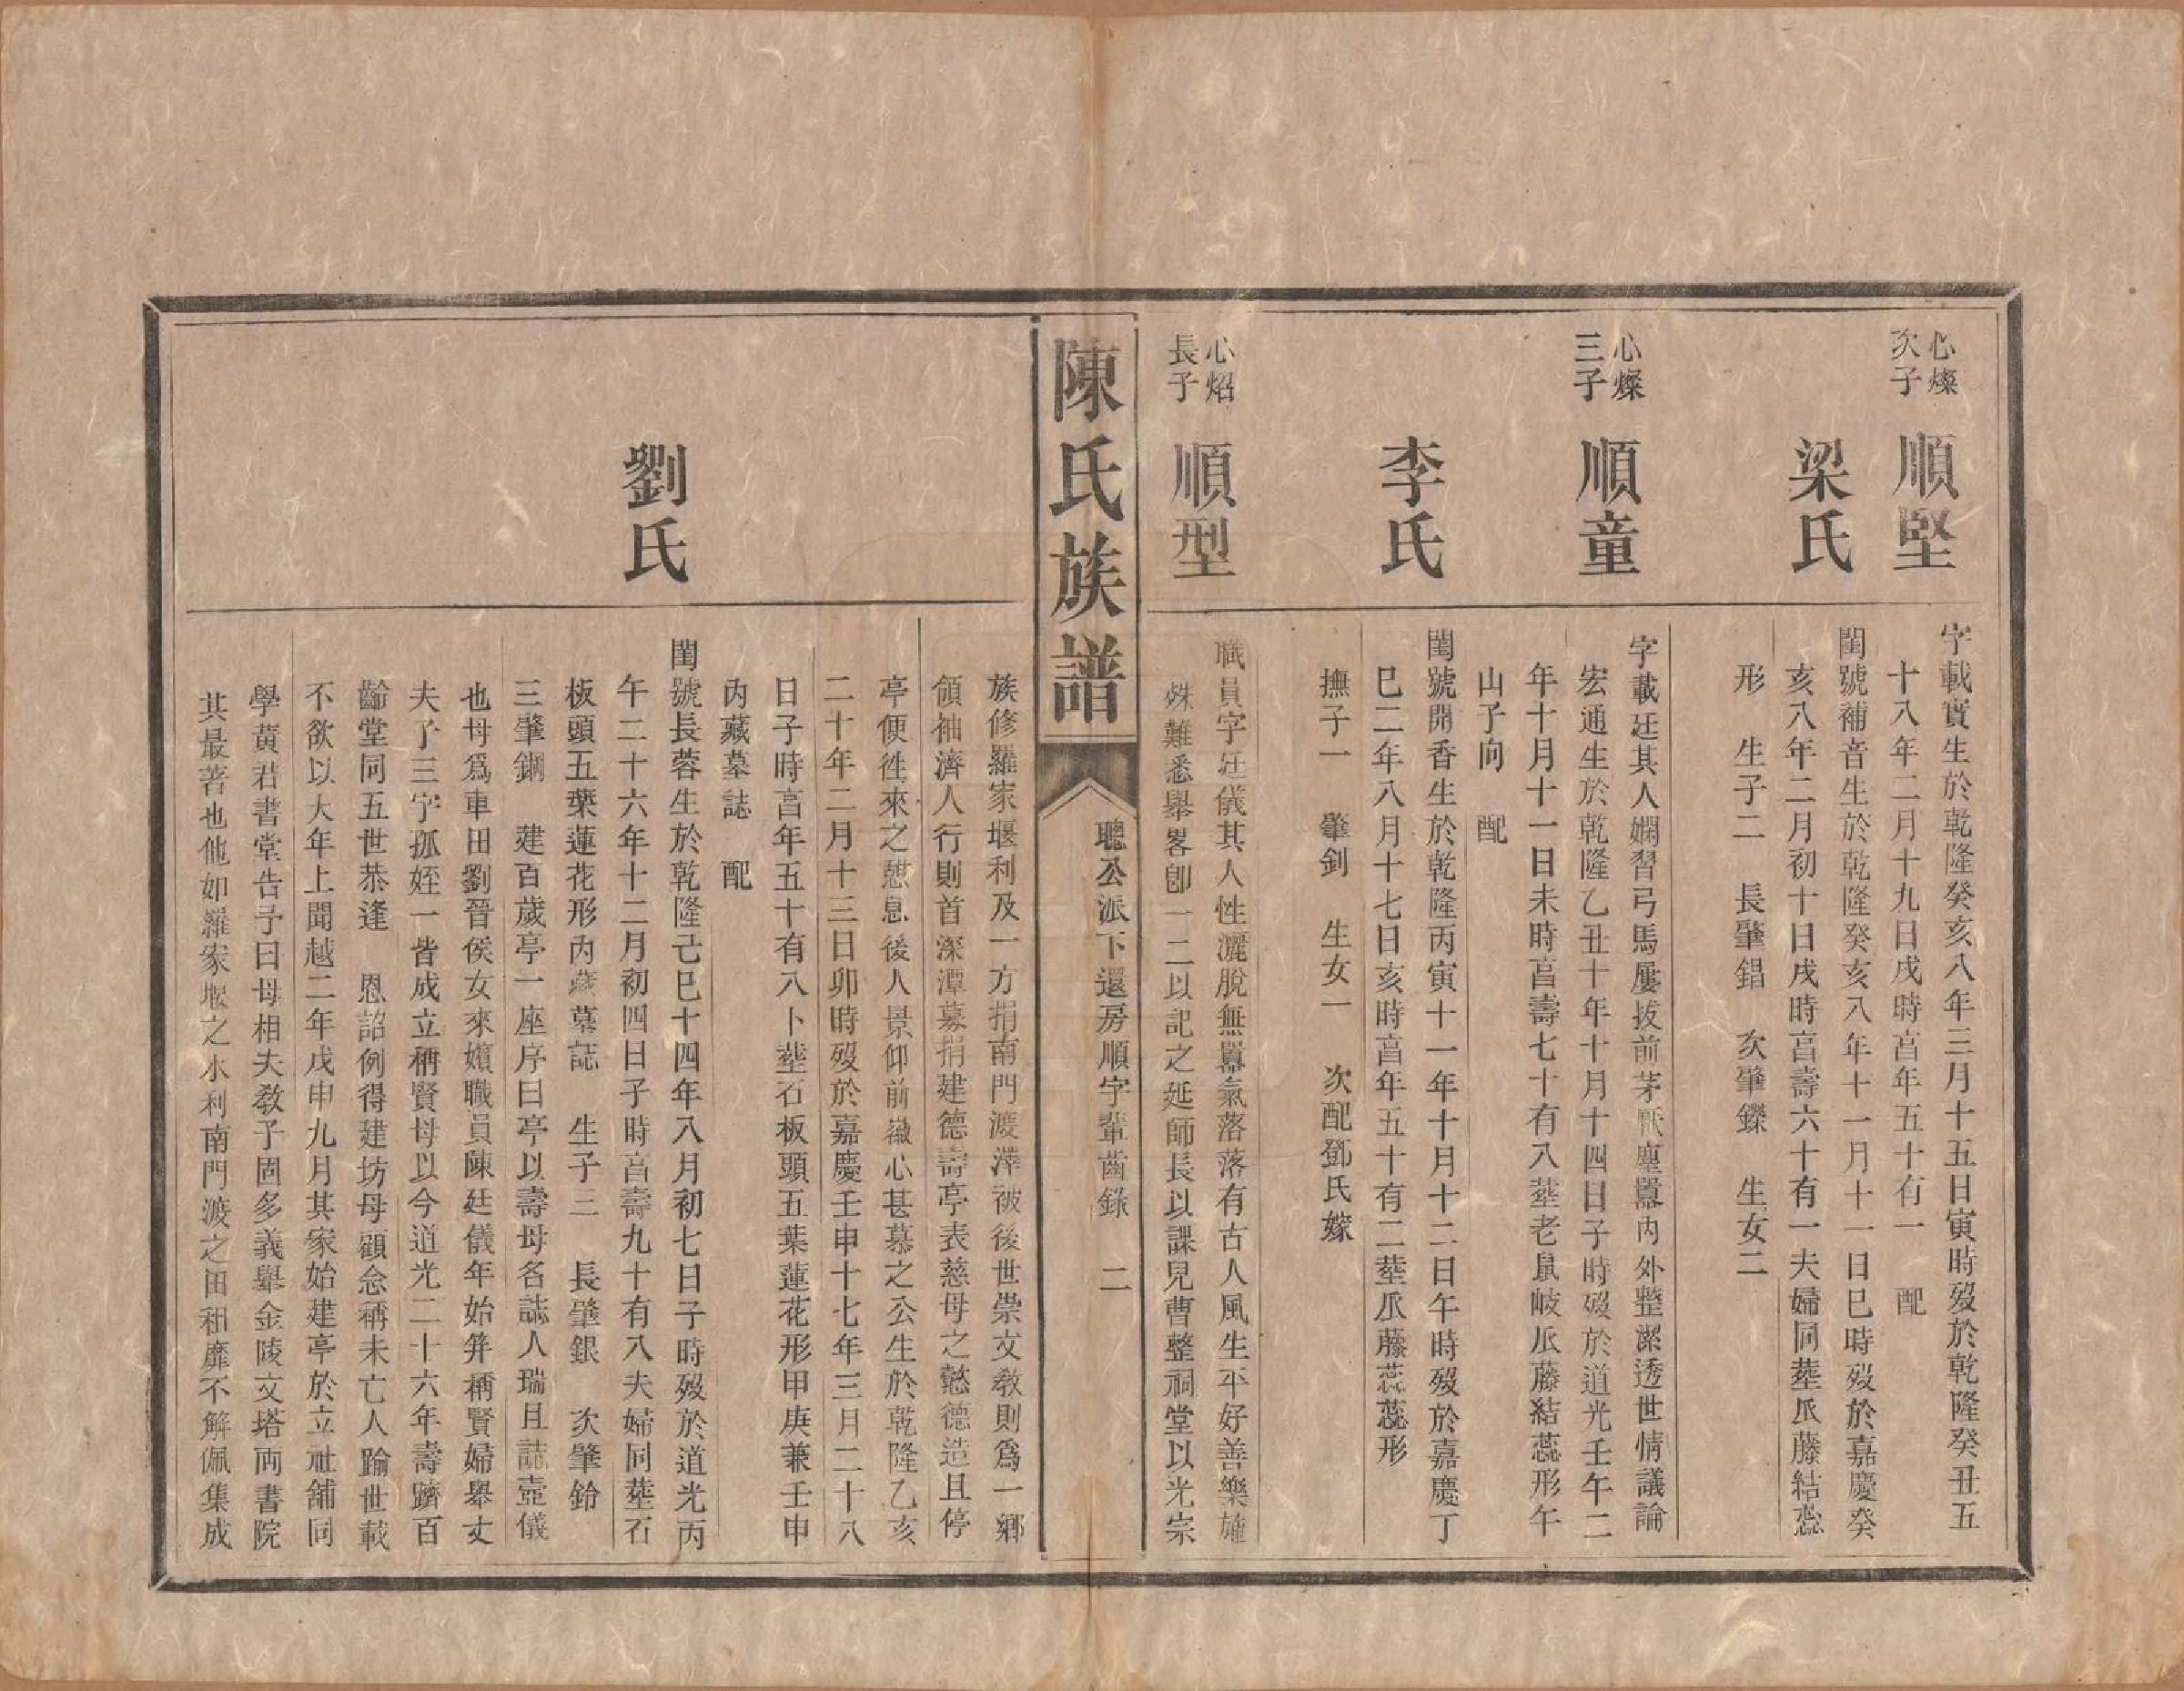 心燦
次子
順堅
字載實生於乾隆癸亥八年三月十五日寅時歿於乾隆癸丑五
十八年二月十九日戌時亯年五十有一　配
梁氏
閨號補音生於乾隆癸亥八年十一月十一日巳時歿於嘉慶癸
亥八年二月初十日戌時亯壽六十有一夫婦同塟爪藤結蕊
形　生子二　長肇錩　次肇鑅　生女二
心燦
三子
順童
字載廷其人嫻習弓馬屢拔前茅厭塵囂內外整潔透世情議論
宏通生於乾隆乙丑十年十月十四日子時歿於道光壬午二
年十月十一日未時亯壽七十有八塟老鼠岐爪藤結蕊形午
山子向　配
李氏
閨號開香生於乾隆丙寅十一年十月十二日午時歿於嘉慶丁
巳二年八月十七日亥時亯年五十有二塟爪藤蕊形
撫子一　肇釗　生女一　次配鄧氏嫁
心炤
長子
順型
職員字廷儀其人性灑脫無囂氣落落有古人風生平好善樂施
殊難悉舉畧卽一二以記之延師長以課兒曹整祠堂以光宗
陳氏族譜
聰公派下還房順字輩齒錄　二
族修羅家堰利及一方捐南門渡澤被後世崇文教則爲一鄉
領袖濟人行則首深潭募捐建德壽亭表慈母之懿德造且停
亭便徃來之憇息後人景仰前徽心甚慕之公生於乾隆乙亥
二十年二月十三日卯時歿於嘉慶壬申十七年三月二十八
日子時亯年五十有八卜塟石板頭五葉蓮花形甲庚兼壬申
內藏墓誌　配
劉氏
閨號長蓉生於乾隆己巳十四年八月初七日子時歿於道光丙
午二十六年十二月初四日子時亯壽九十有八夫婦同塟石
板頭五葉蓮花形內藏墓誌　生子三　長肇銀　次肇鈴
三肇鋼　建百歲亭一座序曰亭以壽母名誌人瑞且誌壼儀
也母爲車田劉晉侯女來嬪職員陳廷儀年始笄稱賢婦舉丈
夫子三字孤姪一皆成立稱賢母以今道光二十六年壽躋百
齡堂同五世恭逢　恩詔例得建坊母顧念稱未亡人踰世載
不欲以大年上聞越二年戊申九月其家始建亭於立祉舖同
學黃君書堂告予曰母相夫敎子固多義舉金陵文塔兩書院
其最著也他如羅家堰之水利南門渡之田租靡不解佩集成